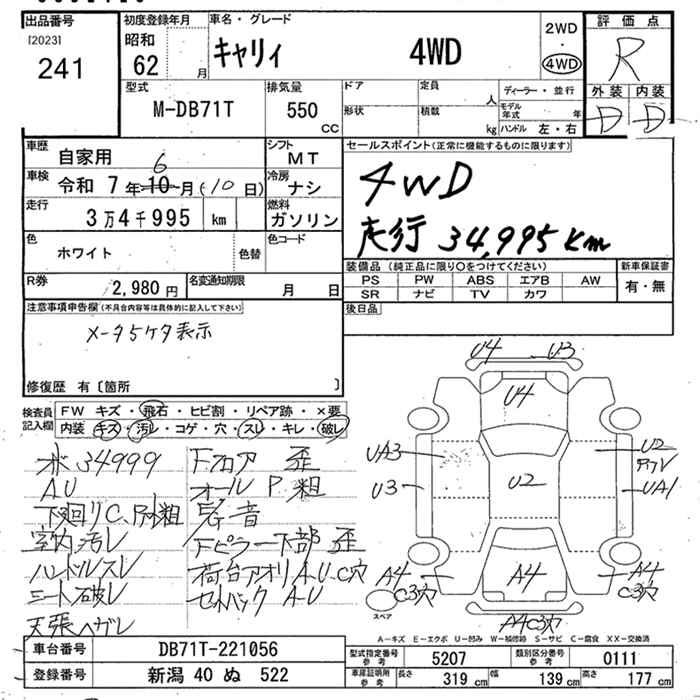 出品番号
[2023]
241
初度登録年月
昭和
62 月
車名・グレード
キャリィ 4WD
2WD
・
4WD
評価点
R
外装 内装
D D
型式
M-DB71T
排気量
550 cc
ドア
形状
定員 人
積載 kg
ディーラー・並行
モデル年式 年
ハンドル 左・右
車歴 自家用
シフト MT
車検 令和 7年 10 6 月 (10日)
冷房 ナシ
走行 3万4千995 km
燃料 ガソリン
色 ホワイト 色替
色コード
R券 2,980円
名変通知期限 月 日
セールスポイント(正常に機能するものに限ります)
4WD
走行 34,995km
装備品 (純正品に限り○をつけてください)
PS PW ABS エアB AW
SR ナビ TV カワ
新車保証書
有・無
後日品
注意事項申告欄(不具合内容等は具体的に記入して下さい)
メータ5ケタ表示
修復歴 有〔箇所 〕
検査員記入欄
FW キズ・飛石・ヒビ割・リペア跡・×要
内装 キズ・汚レ・コゲ・穴・スレ・キレ・破レ
34999
AU
下廻りC
室内汚レ
ハンドルスレ
シート破レ
天張ハガレ
Fフロア 歪
オールP粗
音
Fピラー下部 歪
荷台アオリA.U.C穴
セットバック A-U
U4 U3
U4
UA3
U2
U3
U2
UA1
A4
C3穴
A4
A4
C3穴
A4C3穴
スペア
A－キズ E－エクボ U－凹み W－補修跡 S－サビ C－腐食 XX－交換済
車台番号 DB71T-221056
登録番号 新潟 40 ぬ 522
型式指定番号 参考 5207
類別区分番号 参考 0111
車庫証明用 参考
長さ 319 cm 幅 139 cm 高さ 177 cm